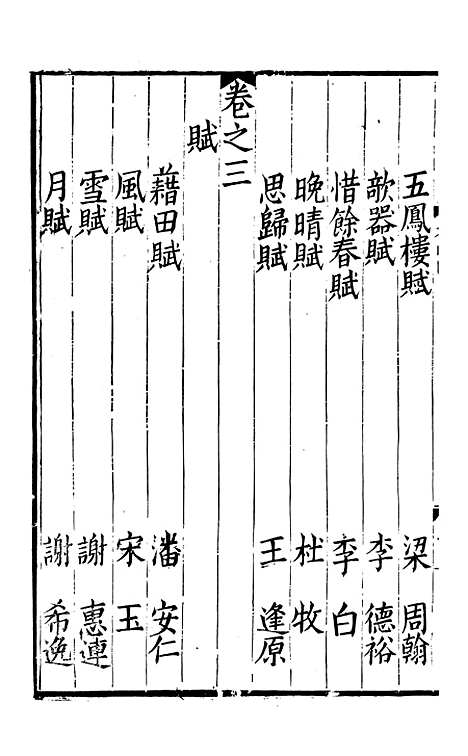 五鳳樓賦 梁周翰
欹器賦 李德裕
惜餘春賦 李白
晚晴賦 杜牧
思歸賦 王逢原
卷之三
賦
藉田賦 潘安仁
風賦 宋玉
雪賦 謝惠連
月賦 謝希逸